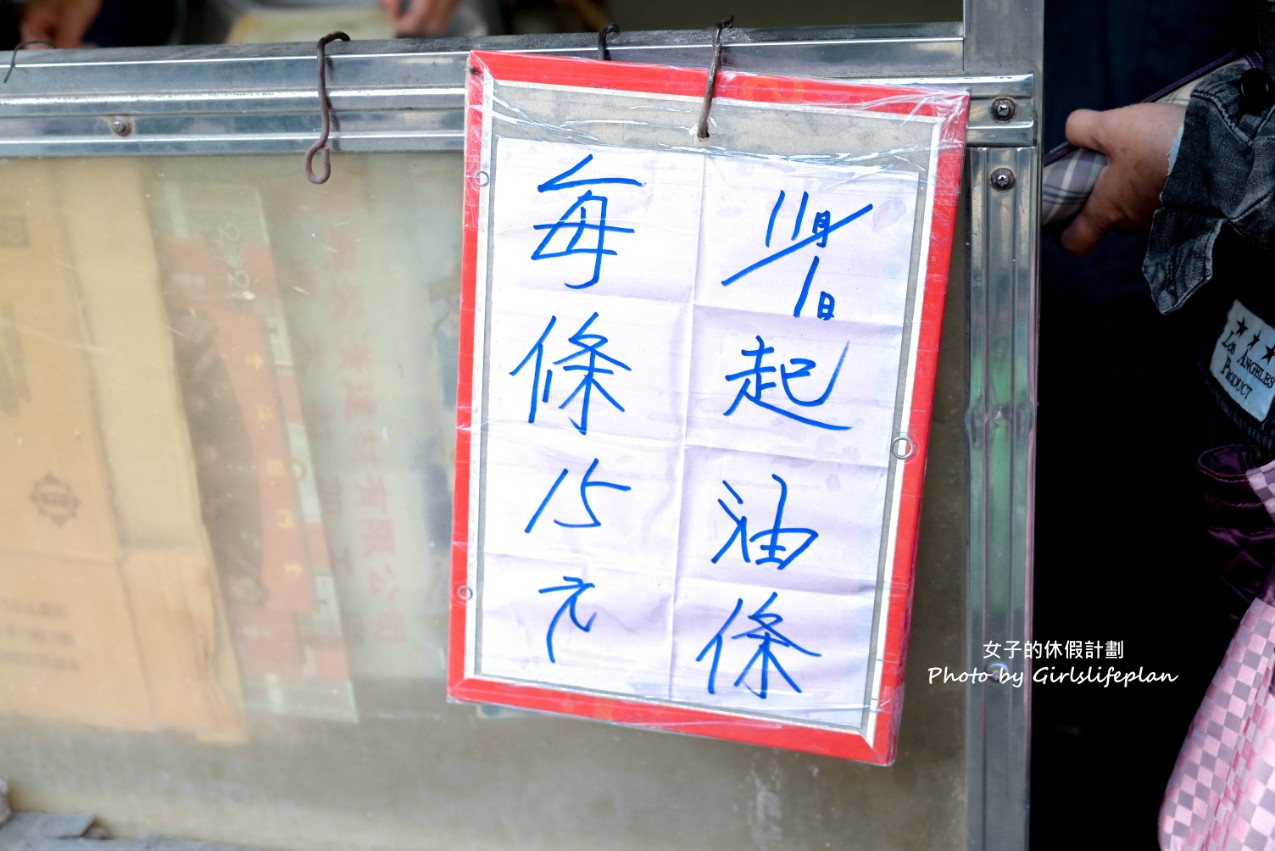 11月/1日起油條
每條15元
LOS ANGELES
PRODUCT
女子的休假計劃
Photo by Girlslifeplan